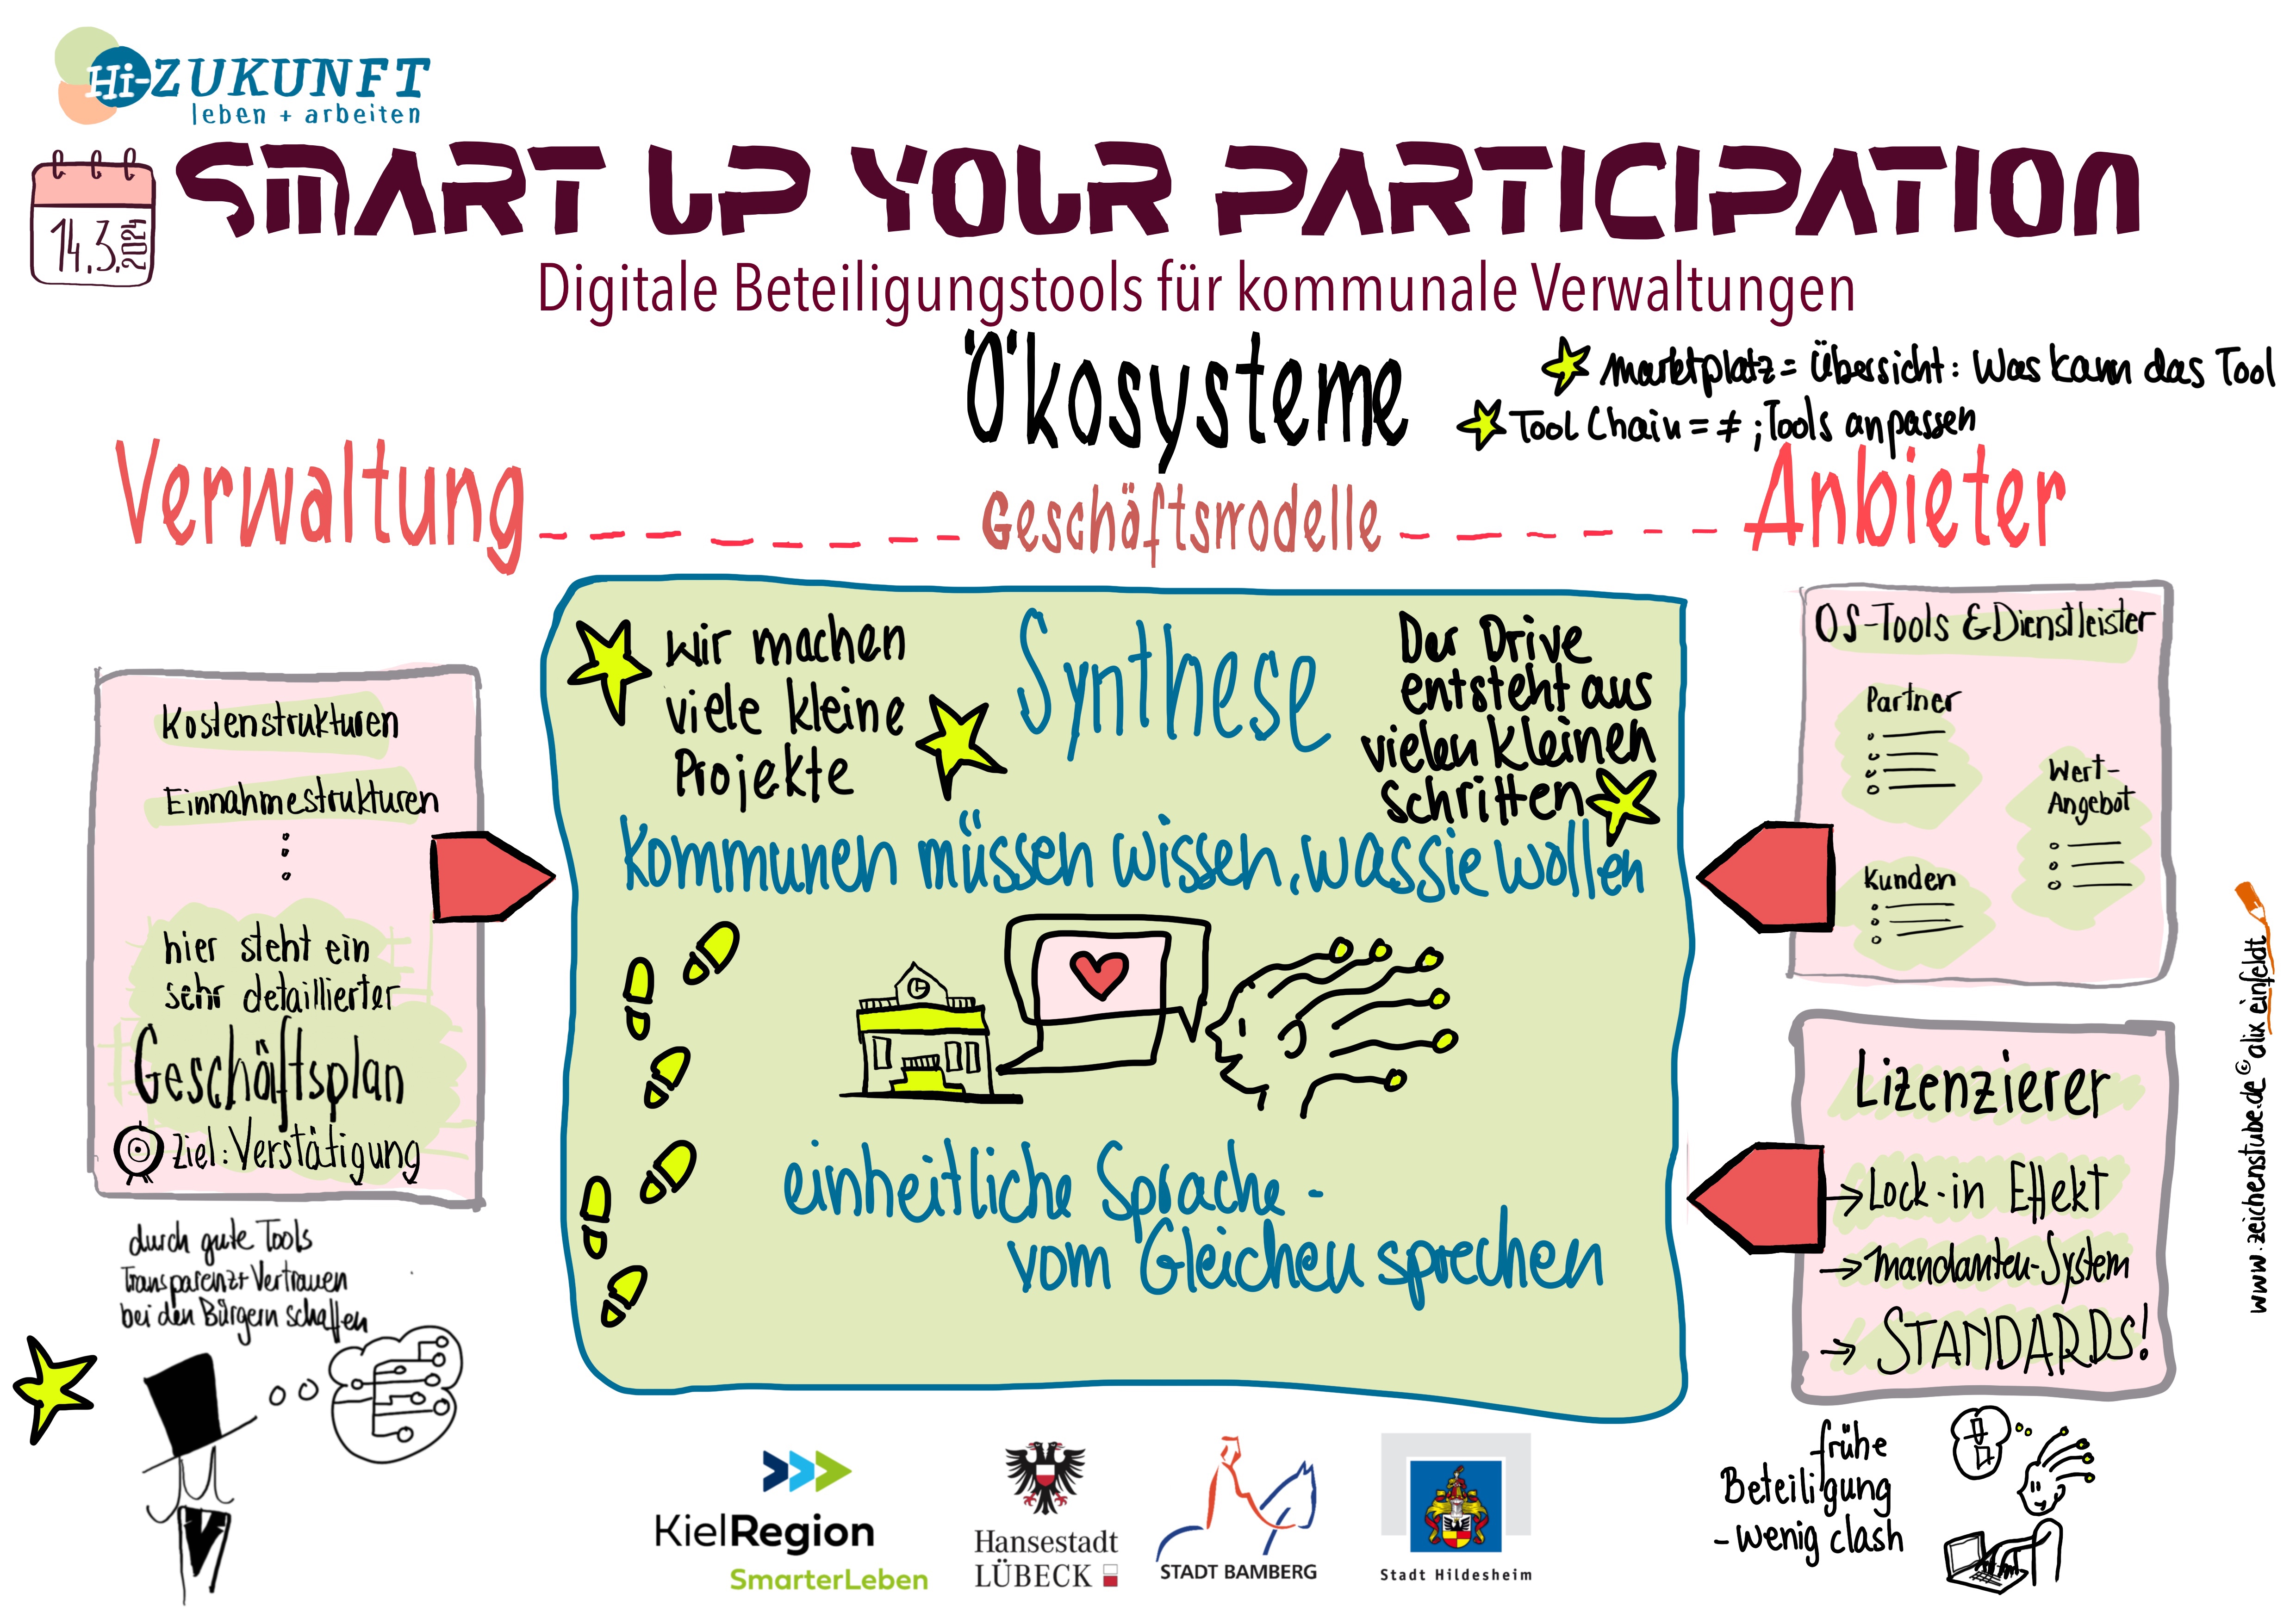 Hi-ZUKUNFT
leben + arbeiten
14.3.2024
SMART UP YOUR PARTICIPATION
Digitale Beteiligungstools für kommunale Verwaltungen
Ökosysteme
Marktplatz = Übersicht: Was kann das Tool
Tool Chain = ≠ ; Tools anpassen
Verwaltung
Geschäftsmodelle
Anbieter
Kostenstrukturen
Einnahmestrukturen
hier steht ein
sehr detaillierter
Geschäftsplan
Ziel: Verstätigung
durch gute Tools
Transparenz + Vertrauen
bei den Bürgern schaffen
Wir machen
viele kleine
Projekte
Synthese
Der Drive
entsteht aus
vielen kleinen
Schritten
Kommunen müssen wissen, was sie wollen
einheitliche Sprache -
vom Gleichen sprechen
OS-Tools & Dienstleister
Partner
Wert-
Angebot
Kunden
Lizenzierer
→ Lock-in Effekt
→ Mandanten-System
→ STANDARDS!
frühe
Beteiligung
- wenig clash
KielRegion
SmarterLeben
Hansestadt
LÜBECK
STADT BAMBERG
Stadt Hildesheim
www.zeichenstube.de © alix einfeldt